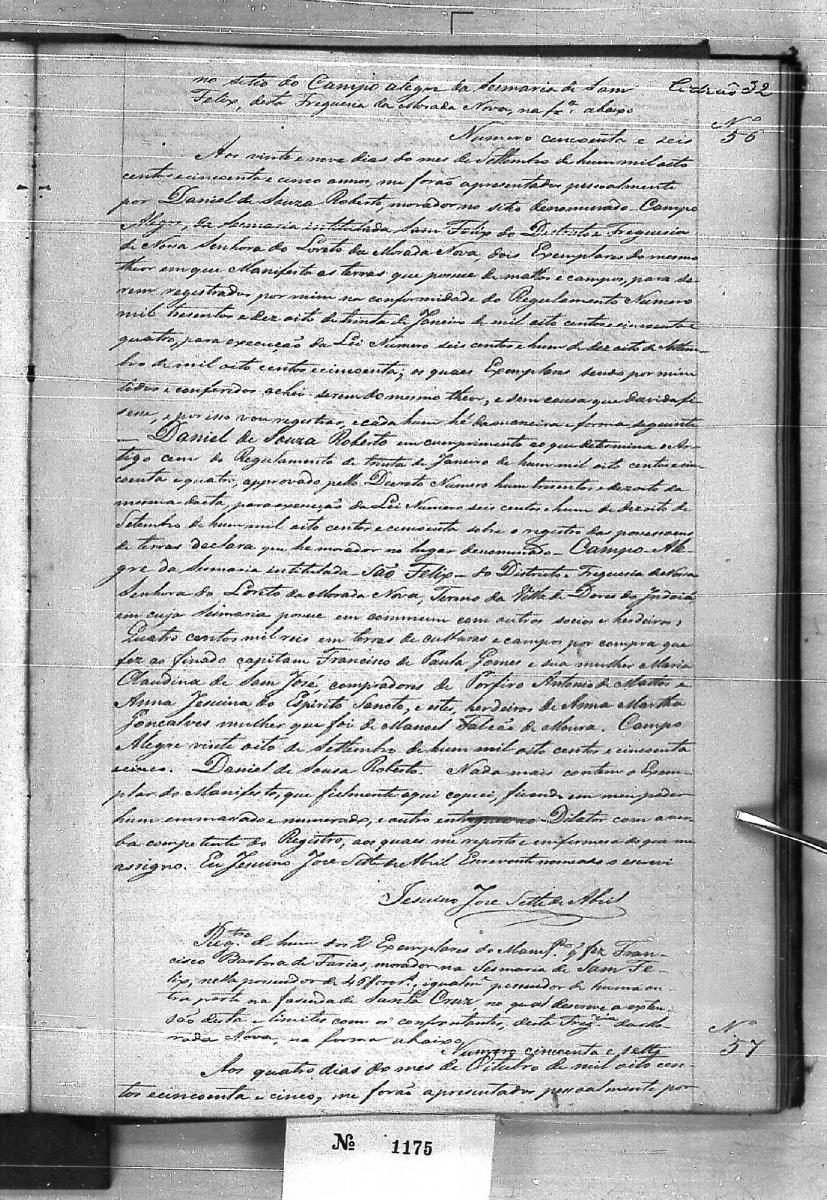 no sitio do Campo alegre da Sesmaria de Sam
Felix, desta Freguesia da Morada Nova, na fr.ª abaixo
32
Nº
56
Numero cincoenta e seis
Aos vinte e nove dias do mes de Settembro de hum mil oito
centos e cincoenta e cinco annos, me forão apresentados pessoalmente
por Daniel de Souza Roberto, morador no sitio denominado Campo
Alegre, da Sesmaria intitulada Sam Felix do Districto e Freguesia
de Nova Senhora do Loreto da Morada Nova, dois Exemplares do mesmo
theor em que Manifesta as terras que possue de mattos e campos, para se
rem registrados por mim na conformidade do Regulamento Numero
mil tresentos e dez oito de trinta de Janeiro de mil oito centos e cincoenta e
quatro, para execução da Lei Numero seis centos e hum de dez oito de Settem-
bro de mil oito centos e cincoenta; os quaes Exemplares sendo por mim
lidos e conferidos achei serem do mesmo theor, e sem cousa que duvida fi
sesse, e por isso vou registrar, e cada hum hé da maneira e forma seguinte
— Daniel de Souza Roberto em cumprimento ao que determina o Ar-
tigo cem do Regulamento de trinta de Janeiro de hum mil oito centos e cin-
coenta e quatro, approvado pello Decreto Numero hum tresentos e dezoito da
mesma dacta, para execução da Lei Numero seis centos e hum de dezoito de
Setembro de hum mil oito centos e cincoenta sobre o registro das possessoens
de terras declara que he morador no lugar denominado — Campo Ale-
gre da Sesmaria intitulada — São Felix — do Districto e Freguesia de Nossa
Senhora do Loreto da Morada Nova, Termo da Villa de Dores do Indaiá,
em cuja Sesmaria possue em commum com outros socios e herdeiros;
Quatro centos mil reis em terras de culturas e campos, por compra que
fez ao finado capitam Francisco de Paula Gomes e sua mulher Maria
Claudina de Sam José, compradores de Porfiro Antonio de Mattos e
Anna Jesuina do Espirito Sancto, e estes, herdeiros de Anna Martha
Goncalves mulher que foi de Manoel Falcão de Moura. Campo
Alegre vinte oito de Settembro de hum mil oito centos e cincoenta
e cinco. Daniel de Sousa Roberto. Nada mais contem o Exem-
plar do Manifesto, que fielmente aqui copiei, ficando em meu poder
hum emmassado e numerado, e outro entregue ao Dilator com a ver-
ba competente do Registro, aos quaes me reporto e em firmesa do que me
assigno. Eu Jesuino José Sette de Abril Escrevente nomeado o escrevi
Jesuino Jose Sette de Abril
Reg.tro de hum dos 2 Exemplares do Manif.to q̃ fez Fran-
cisco Barbosa de Farias, morador na Sesmaria de Sam Fe-
lix, nella possuidor de igualm.te possuidor de huma ou
tra parte na fasenda de Santa Cruz no qual descreve a exten-
são desta e limites com os confrontantes, desta Freg.sia da Mo-
rada Nova, na forma abaixo
Nº
57
Numero cincoenta e sette
Aos quatro dias do mes de Outubro de mil oito cen-
tos e cincoenta e cinco, me forão apresentados pessoalmente, por
Nº 1175